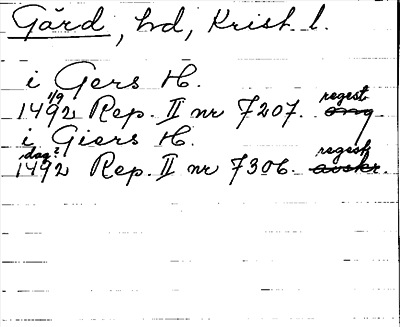 Gärd, hd, Krist. l.
i Gers H.
1/9
1492 Rep. II nr 7207. regest orig
i Giers H.
dag?
1492 Rep. II nr 7306. regest avskr.